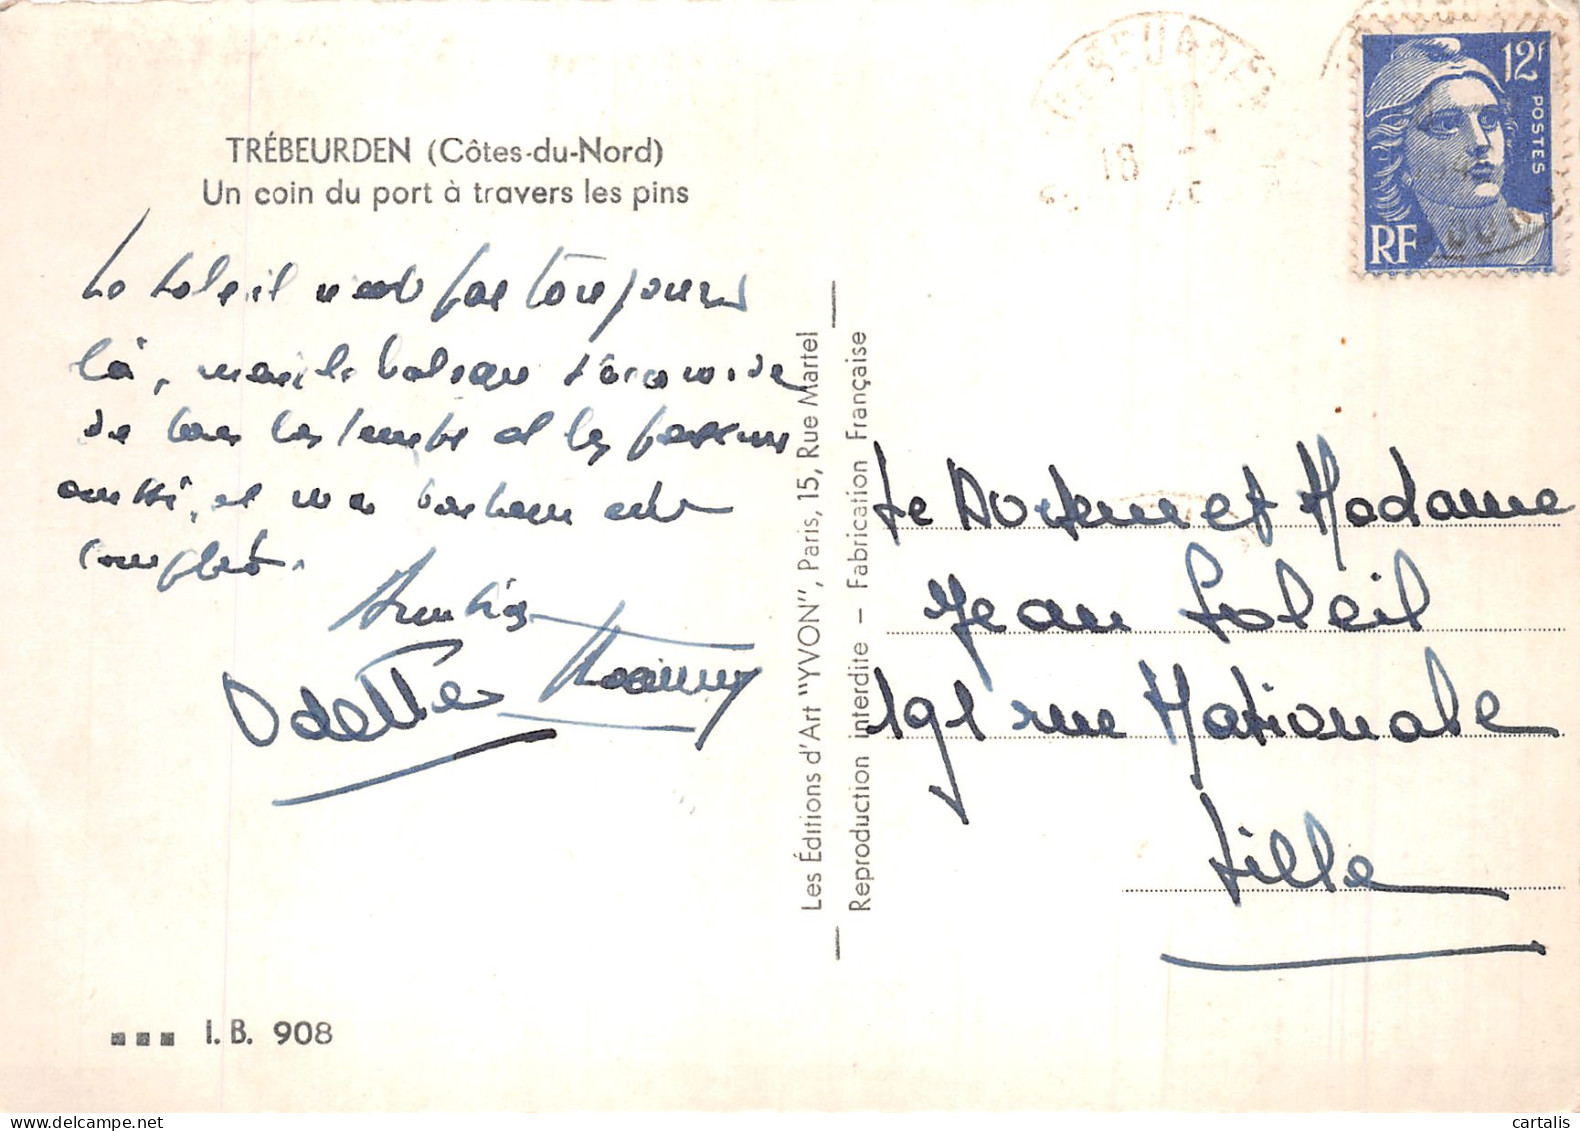 TRÉBEURDEN (Côtes-du-Nord)
Un coin du port à travers les pins
Le soleil n'est pas toujours
là, mais le bateau s'accomode
de tous les temps et les
aussi, et mon bonheur est
complet.
Amitiés
Odette
Les Éditions d'Art "YVON", Paris, 15, Rue Martel
Reproduction interdite – Fabrication Française
12f
POSTES
RF
18
Le Docteur et Madame
Jean Soleil
191 rue Nationale
Lille
I.B. 908
cartalis